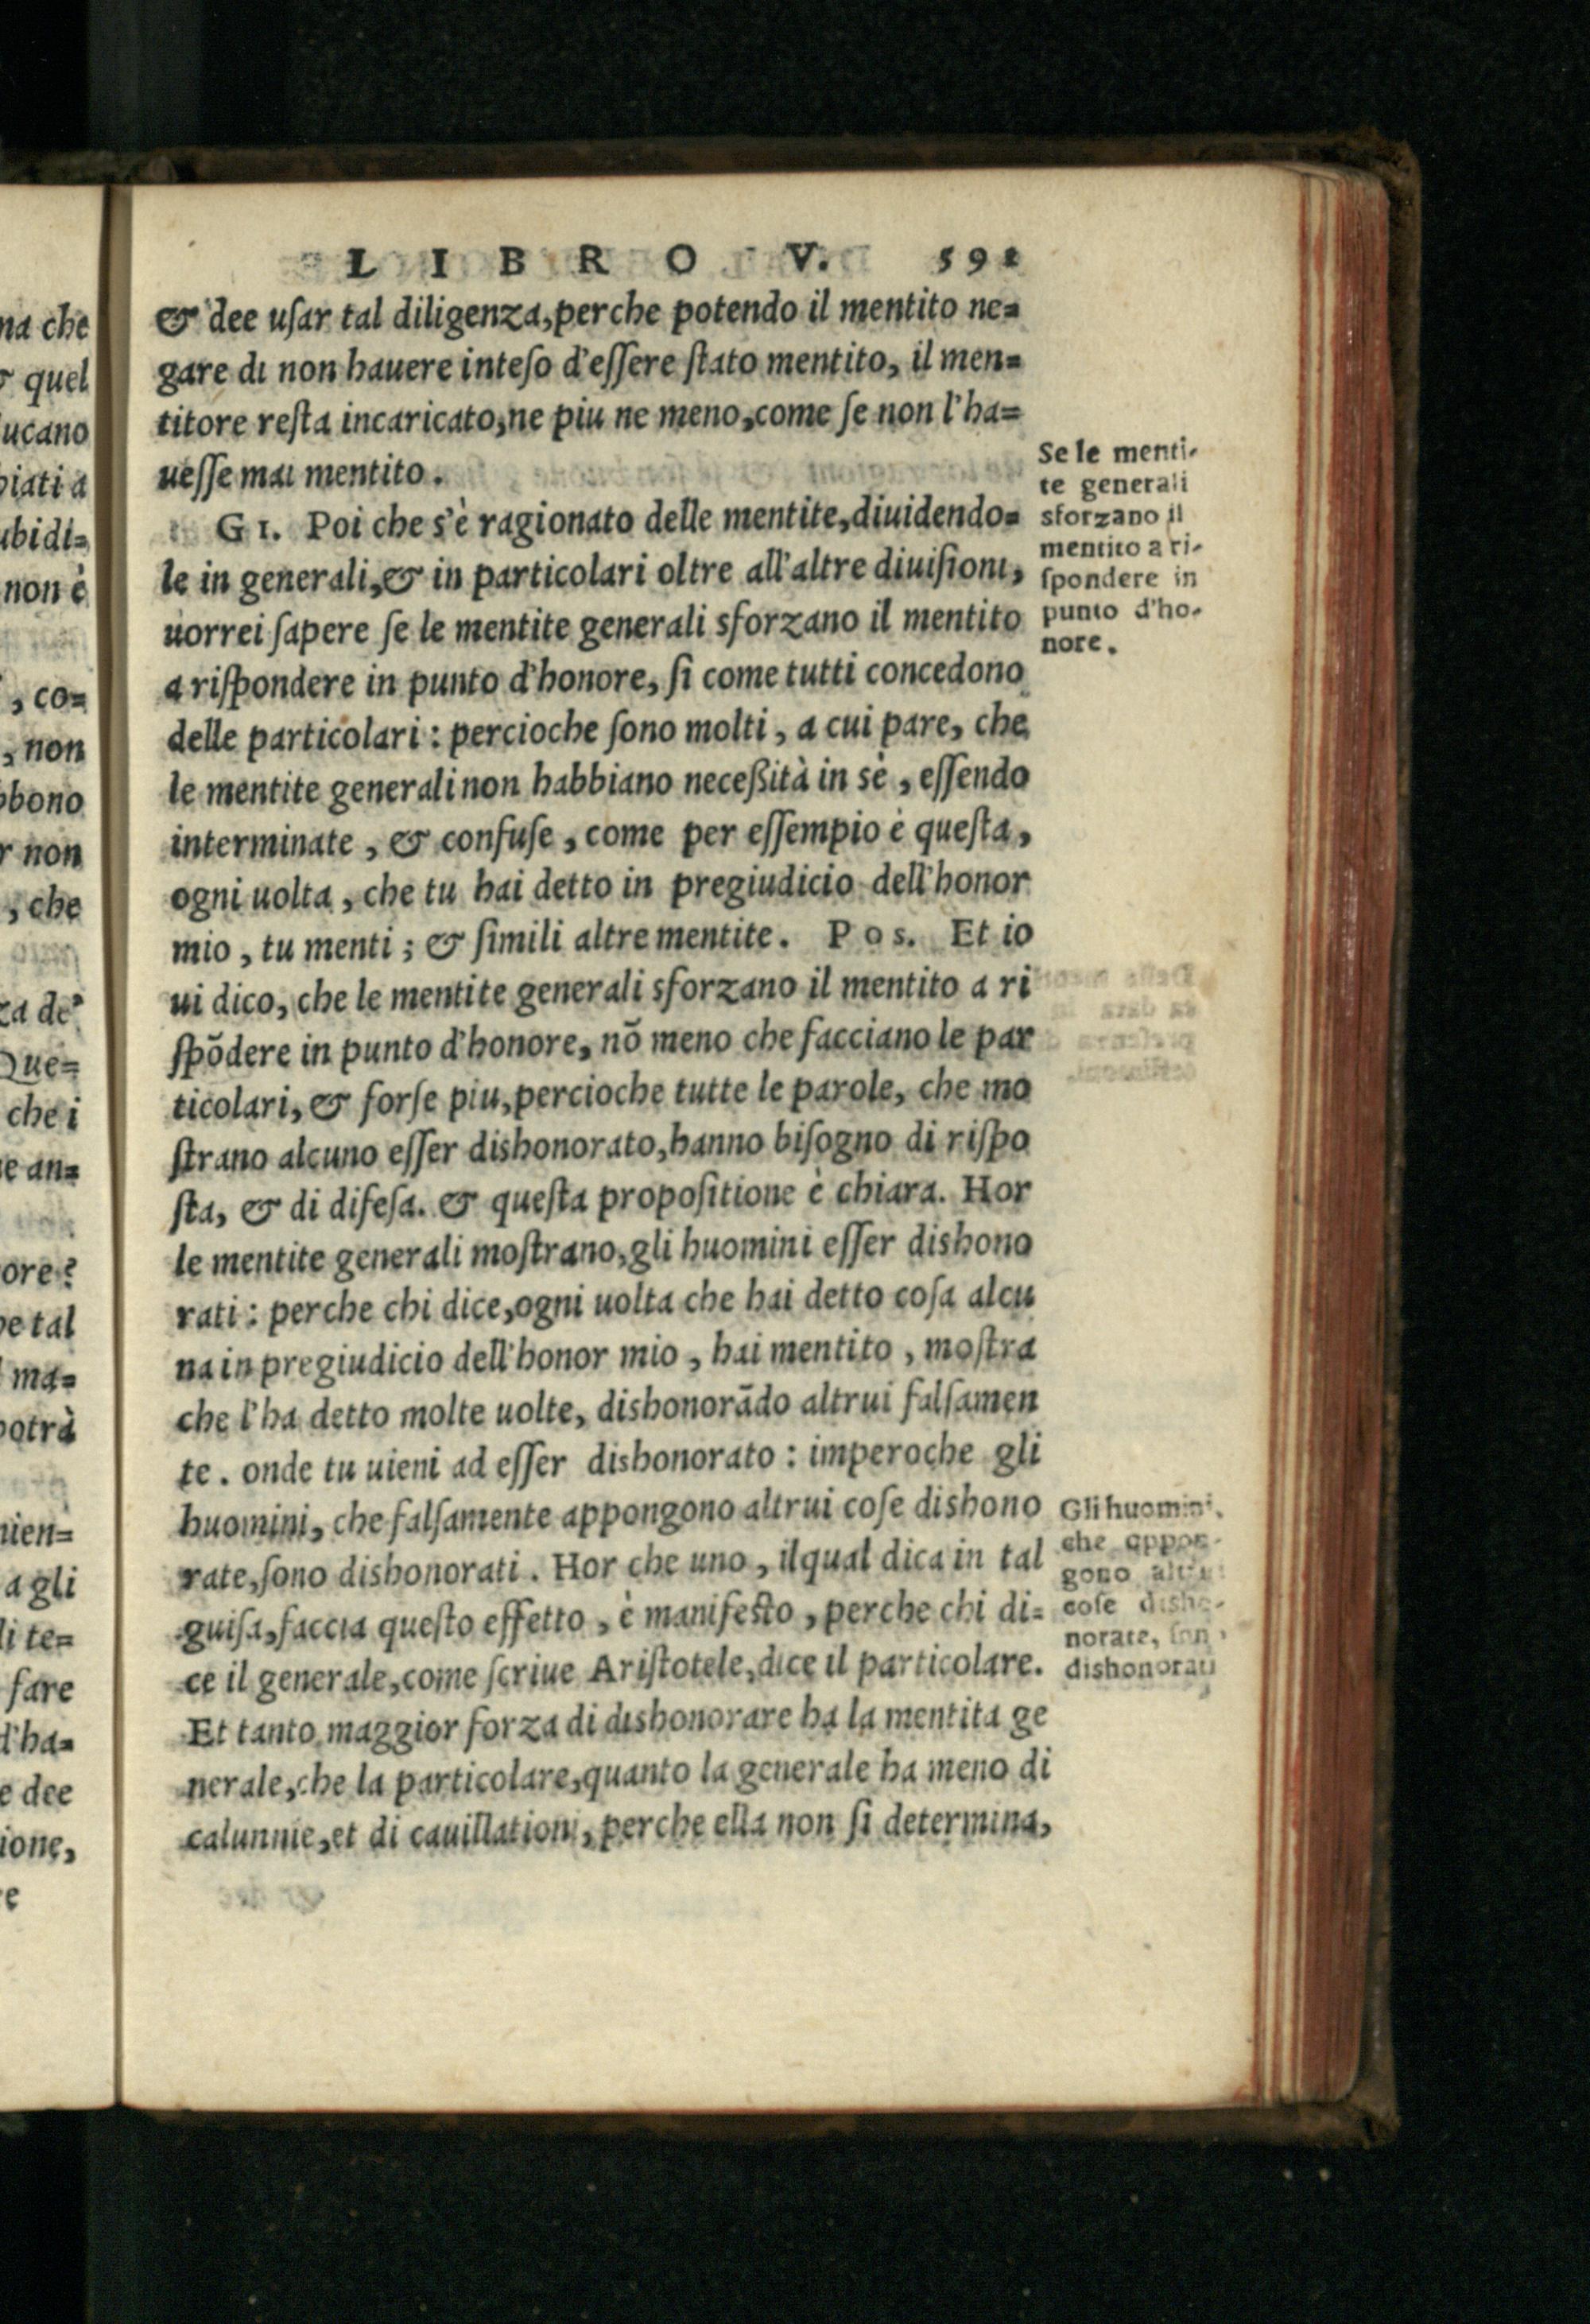 LIBRO V. 591
& dee uſar tal diligenza, perche potendo il mentito ne=
gare di non hauere inteſo d'eſſere ſtato mentito, il men=
titore reſta incaricato, ne piu ne meno, come ſe non l'ha=
ueſſe mai mentito.
GI. Poi che s'è ragionato delle mentite, diuidendo=
le in generali, & in particolari oltre all'altre diuiſioni,
uorrei ſapere ſe le mentite generali sforzano il mentito
a riſpondere in punto d'honore, ſi come tutti concedono
delle particolari: percioche ſono molti, a cui pare, che
le mentite generali non habbiano neceßità in sè, eſſendo
interminate, & confuſe, come per eſſempio è queſta,
ogni uolta, che tu hai detto in pregiudicio dell'honor
mio, tu menti; & ſimili altre mentite. Pos. Et io
ui dico, che le mentite generali sforzano il mentito a ri
ſpõdere in punto d'honore, nõ meno che facciano le par
ticolari, & forſe piu, percioche tutte le parole, che mo
ſtrano alcuno eſſer dishonorato, hanno biſogno di riſpo
ſta, & di difeſa. & queſta propoſitione è chiara. Hor
le mentite generali moſtrano, gli huomini eſſer dishono
rati: perche chi dice, ogni uolta che hai detto coſa alcu
na in pregiudicio dell'honor mio, hai mentito, moſtra
che l'ha detto molte uolte, dishonorãdo altrui falſamen
te. onde tu uieni ad eſſer dishonorato: imperoche gli
huomini, che falſamente appongono altrui coſe dishono
rate, ſono dishonorati. Hor che uno, ilqual dica in tal
guiſa, faccia queſto effetto, è manifeſto, perche chi di=
ce il generale, come ſcriue Ariſtotele, dice il particolare.
Et tanto maggior forza di dishonorare ha la mentita ge
nerale, che la particolare, quanto la generale ha meno di
calunnie, et di cauillationi, perche ella non ſi determina,
Se le menti-
te generali
sforzano il
mentito a ri-
ſpondere in
punto d'ho-
nore.
Gli huomini,
che appon-
gono altrui
coſe disho-
norate, ſono
dishonorati
na che
quel
ucano
biati a
ubidi=
non è
, co=
, non
bbono
non
, che
za de'
Que=
che i
an=
ore?
tal
ma=
potrà
nien=
a gli
te=
fare
d'ha=
dee
ione,